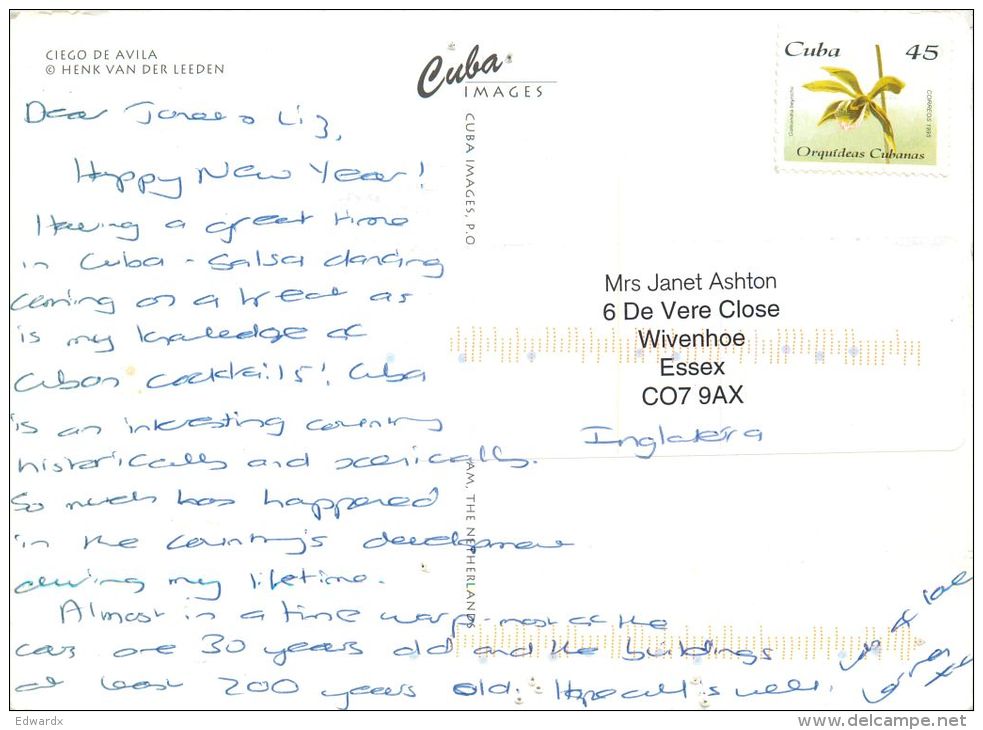 CIEGO DE AVILA
© HENK VAN DER LEEDEN
Cuba
IMAGES
Cuba 45
CORREOS 1995
Orquídeas Cubanas
CUBA IMAGES, P.O
AM, THE NETHERLANDS
Dear Janet & Liz,
Happy New Year!
Having a great time
in Cuba - salsa dancing
coming on a treat as
is my knowledge of
Cuban cocktails! Cuba
is an interesting country
historically and scenically.
So much has happened
in the country's development
during my lifetime.
Almost in a time warp - most of the
cars are 30 years old and the buildings
at least 200 years old. Hope all's well.
Mrs Janet Ashton
6 De Vere Close
Wivenhoe
Essex
CO7 9AX
Inglaterra
Edwardx
www.delcampe.net